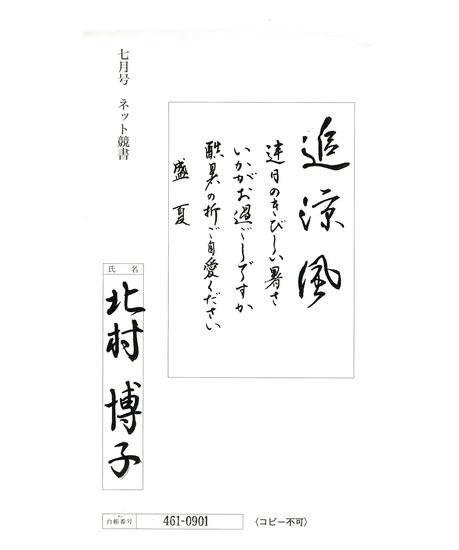 七月号 ネット競書
追涼風
連日のきびしい暑さ
いかがお過ごしですか
酷暑の折ご自愛ください
盛夏
氏名
北村 博子
台帳番号 461-0901 〈コピー不可〉